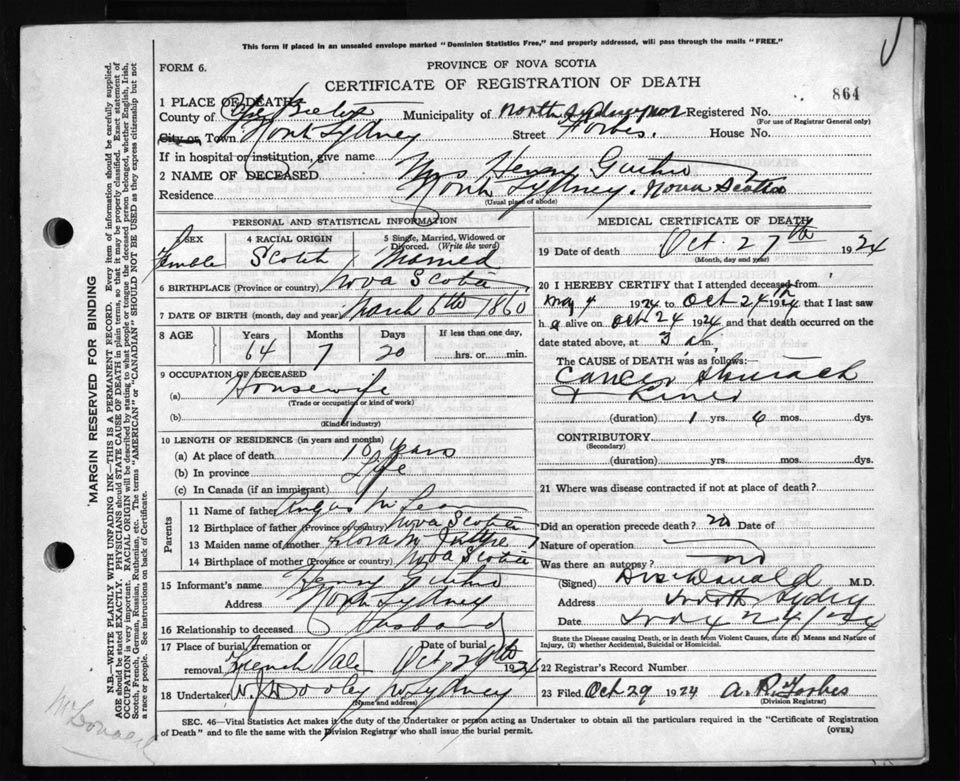 This form if placed in an unsealed envelope marked "Dominion Statistics Free," and properly addressed, will pass through the mails "FREE."
FORM 6.
PROVINCE OF NOVA SCOTIA
CERTIFICATE OF REGISTRATION OF DEATH
864
1 PLACE OF DEATH:
County of Municipality of North Sydney Registered No.
(For use of Registrar General only)
City or Town North Sydney Street Forbes. House No.
If in hospital or institution, give name
2 NAME OF DECEASED Mrs Henry
Residence North Sydney. Nova Scotia
(Usual place of abode)
PERSONAL AND STATISTICAL INFORMATION
3 SEX Female
4 RACIAL ORIGIN Scotch
5 Single, Married, Widowed or Divorced. (Write the word) Married
6 BIRTHPLACE (Province or country) Nova Scotia
7 DATE OF BIRTH (month, day and year) March 6th 1860
8 AGE Years Months Days If less than one day,
64 7 20 hrs. or min.
9 OCCUPATION OF DECEASED
(a) Housewife
(Trade or occupation or kind of work)
(b)
(Kind of industry)
10 LENGTH OF RESIDENCE (in years and months)
(a) At place of death 10 years
(b) In province Life
(c) In Canada (if an immigrant)
Parents
11 Name of father Angus
12 Birthplace of father (Province or country) Nova Scotia
13 Maiden name of mother Flora
14 Birthplace of mother (Province or country) Nova Scotia
15 Informant's name Henry
Address North Sydney
16 Relationship to deceased Husband
17 Place of burial, cremation or removal French Vale Date of burial Oct 29th 1924
18 Undertaker W. J. Dooley N Sydney
(Name and address)
MEDICAL CERTIFICATE OF DEATH
19 Date of death Oct. 27th 1924
(Month, day and year)
20 I HEREBY CERTIFY that I attended deceased from
May 4 1924 to Oct 24th 1924 that I last saw
h alive on Oct 24 1924 and that death occurred on the
date stated above, at 3 am.
The CAUSE of DEATH was as follows:—
Cancer Stomach
(duration) 1 yrs. 6 mos. dys.
CONTRIBUTORY
(Secondary)
(duration) yrs. mos. dys.
21 Where was disease contracted if not at place of death?
Did an operation precede death? no Date of
Nature of operation
Was there an autopsy? no
(Signed) M.D.
Address North Sydney
Date
State the Disease causing Death, or in death from Violent Causes, state (1) Means and Nature of Injury, (2) whether Accidental, Suicidal or Homicidal.
22 Registrar's Record Number
23 Filed Oct 29 1924 A. R. Forbes
(Division Registrar)
SEC. 46—Vital Statistics Act makes it the duty of the Undertaker or person acting as Undertaker to obtain all the particulars required in the "Certificate of Registration
of Death" and to file the same with the Division Registrar who shall issue the burial permit.
(OVER)
MARGIN RESERVED FOR BINDING
N.B.—WRITE PLAINLY WITH UNFADING INK—THIS IS A PERMANENT RECORD. Every item of information should be carefully supplied.
AGE should be stated EXACTLY. PHYSICIANS should STATE CAUSE OF DEATH in plain terms, so that it may be properly classified. Exact statement of
OCCUPATION is very important. RACIAL ORIGIN will be described by stating to what people or tongue the deceased person belonged, whether English, Irish,
Scotch, French, German, Russian, Ruthenian, etc. The terms "AMERICAN" or "CANADIAN" SHOULD NOT BE USED as they express citizenship but not
a race or people. See instructions on back of Certificate.